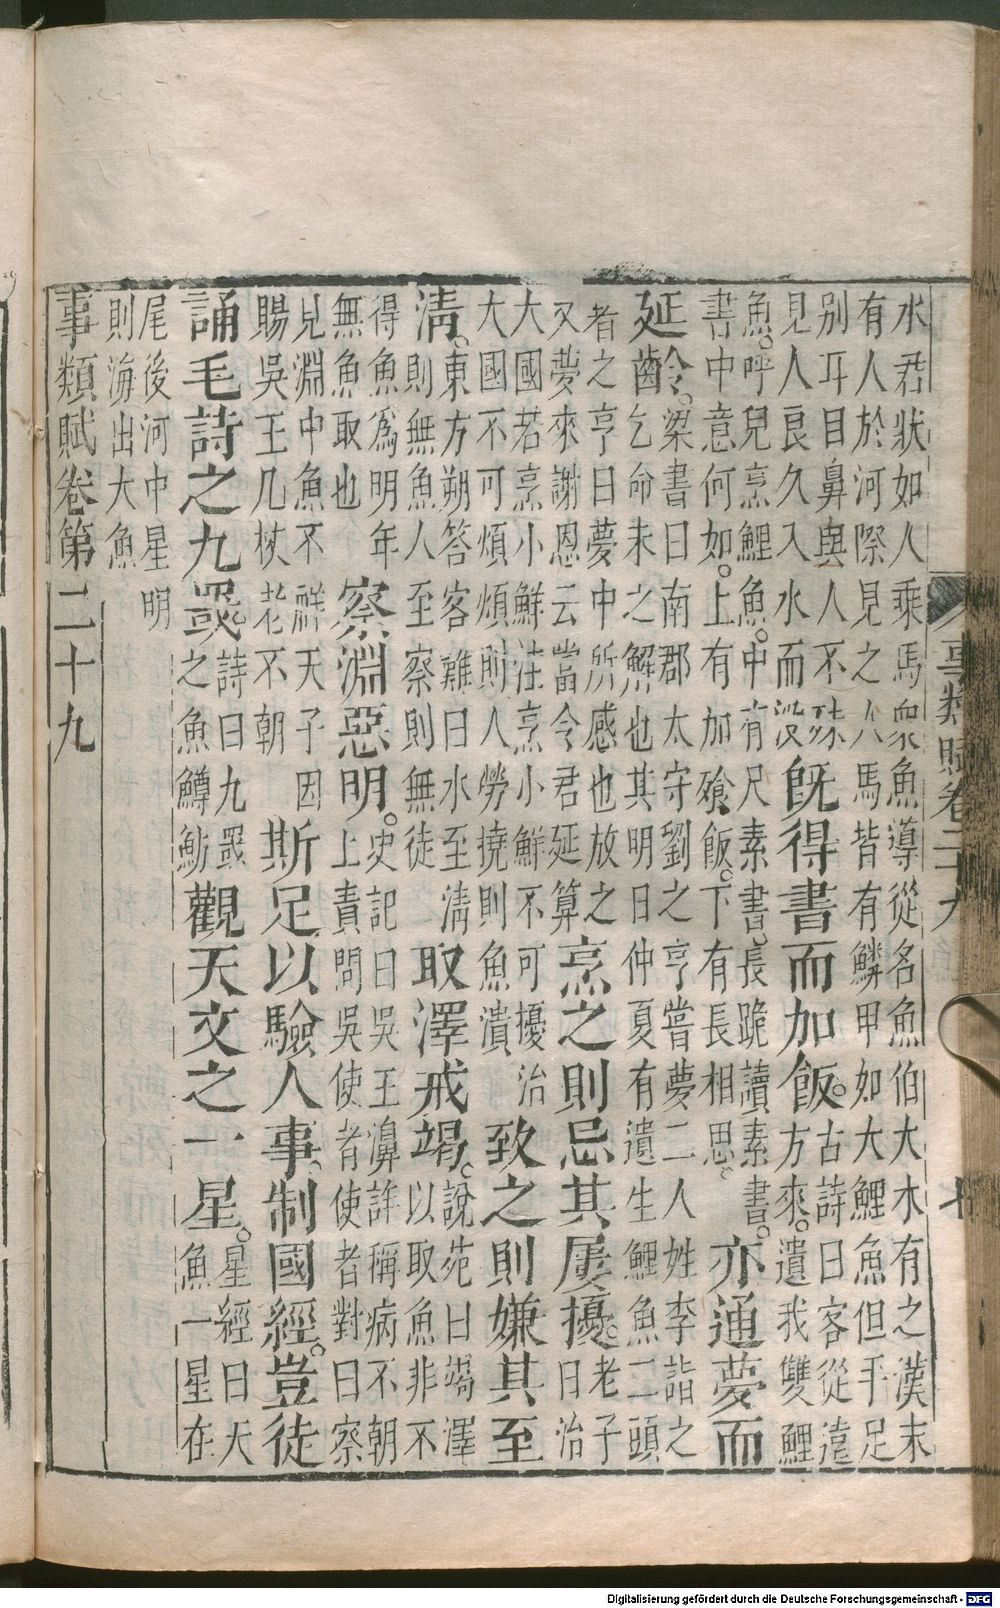 事類賦卷二十九
水君狀如人乘馬衆魚導從名魚伯大水有之漢末
有人於河際見之人馬皆有鱗甲如大鯉魚但手足
別耳目鼻與人不殊
見人良久入水而没
既得書而加飯。
古詩曰客從遠
方來。遺我雙鯉
魚。呼兒烹鯉魚。中有尺素書。長跪讀素書。
書中意何如。上有加飱飯。下有長相思。
亦通夢而
延齡。
梁書曰南郡太守劉之亨嘗夢二人姓李詣之
乞命未之解也其明日仲夏有遺生鯉魚二頭
者之亨曰夢中所感也放之
又夢來謝恩云當令君延算
烹之則忌其屢擾。
老子
曰治
大國若烹小鮮注烹小鮮不可擾治
大國不可煩煩則人勞撓則魚潰
致之則嫌其至
清。
東方朔答客難曰水至清
則無魚人至察則無徒
取澤戒竭。
說苑曰竭澤
以取魚非不
得魚爲明年
無魚取也
察淵惡明。
史記曰吳王濞詐稱病不朝
上責問吳使者使者對曰察
見淵中魚不祥天子因
賜吳王几杖老不朝
斯足以驗人事。制國經。豈徒
誦毛詩之九罭。
詩曰九罭
之魚鱒魴
觀天文之一星。
星經曰天
魚一星在
尾後河中星明
則海出大魚
事類賦卷第二十九
Digitalisierung gefördert durch die Deutsche Forschungsgemeinschaft - DFG